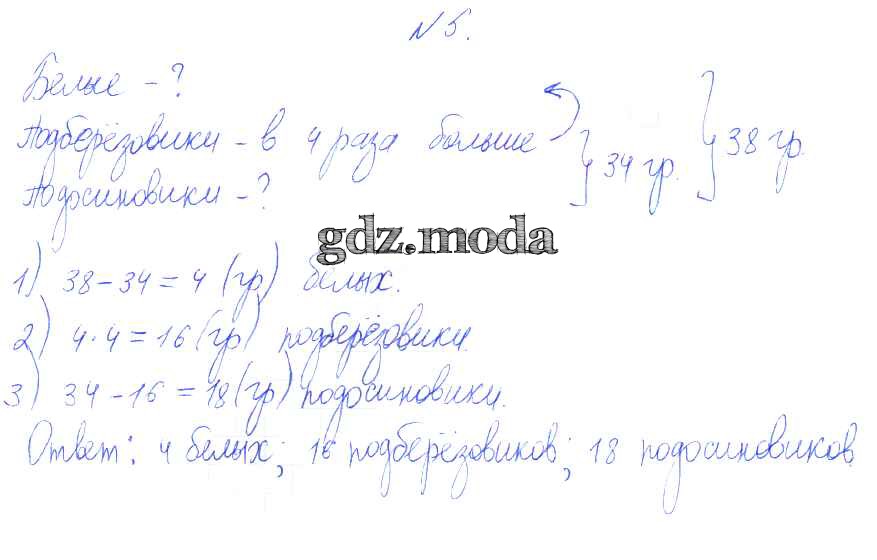 № 5.
Белые - ?
Подберёзовики - в 4 раза больше } 34 гр. } 38 гр.
Подосиновики - ?
gdz.moda
1) 38 - 34 = 4 (гр) белых.
2) 4 · 4 = 16 (гр) подберёзовики.
3) 34 - 16 = 18 (гр) подосиновики.
Ответ: 4 белых; 16 подберёзовиков; 18 подосиновиков